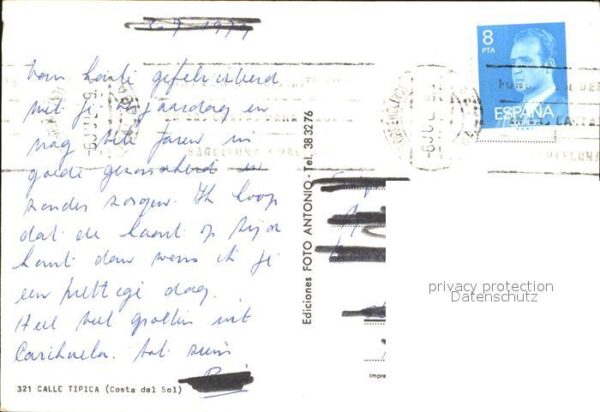 Van harte gefeliciteerd
met je verjaardag en
nog vele Jaren in
goede gezondheid en
zonder zorgen. Ik hoop
dat de kaart op tijd
komt dan wens ik je
een prettige dag.
Heel veel groeten uit
Carihuela. tot ziens
321 CALLE TIPICA (Costa del Sol)
Ediciones FOTO ANTONIO - Tel. 383276
8
PTA
ESPAÑA
BARCELONA
privacy protection
Datenschutz
Impre